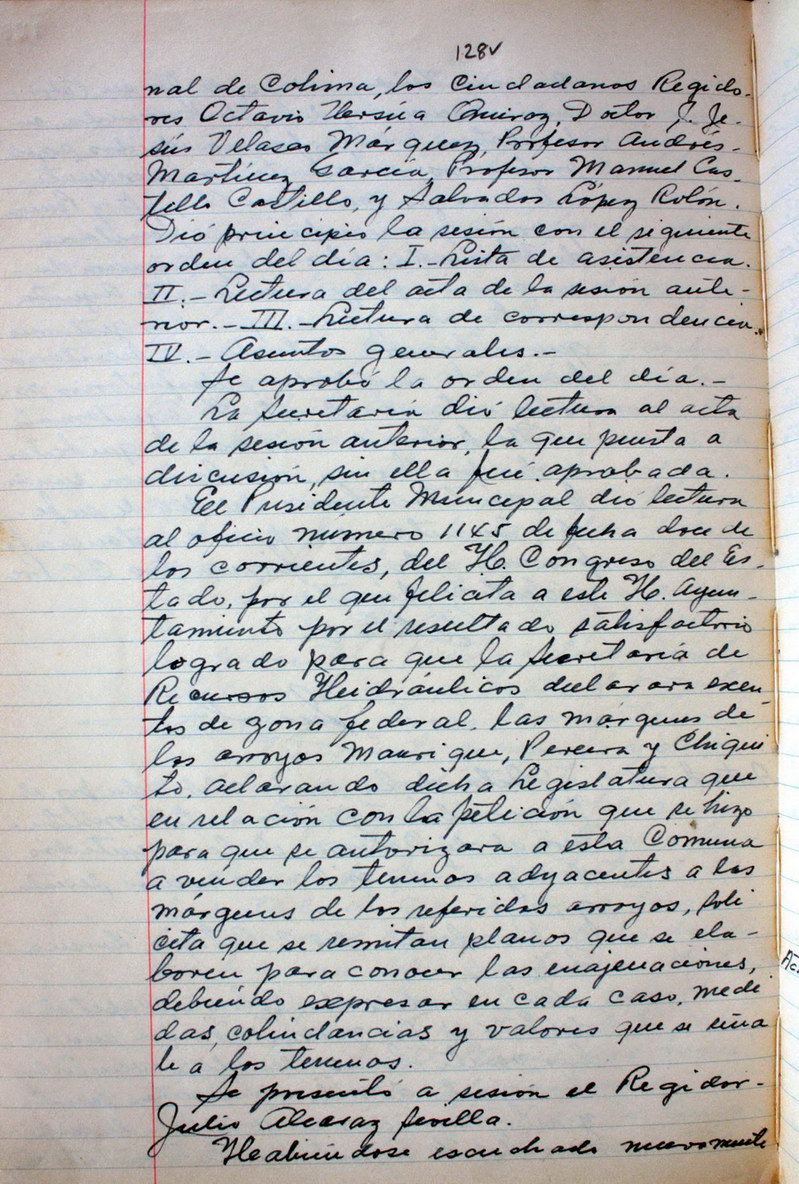 128v
nal de Colima, los Ciudadanos Regido-
res Octavio Versúa Quiroz, Doctor J. Je-
sús Velasco Márquez, Profesor Andrés-
Martínez García, Profesor Manuel Cas-
tillo Castillo, y Salvador López Rolón.
Dió principio la sesión con el siguiente
orden del día: I.- Lista de asistencia.
II.- Lectura del acta de la sesión ante-
rior.- III.- Lectura de correspondencia.
IV.- Asuntos generales.-
Se aprobó la orden del día.-
La Secretaría dió lectura al acta
de la sesión anterior, la que puesta a
discusión, sin ella fué aprobada.
El Presidente Municipal dió lectura
al oficio numero 1145 de fecha doce de
los corrientes, del H. Congreso del Es-
tado, por el que felicita a este H. Ayun-
tamiento por el resultado satisfactorio
logrado para que la Secretaría de
Recursos Hidráulicos declarara exen-
tos de zona federal, las márgenes de
los arroyos Manrique, Pereira y Chiqui
to, aclarando dicha Legislatura que
en relación con la petición que se hizo
para que se autorizara a esta Comuna
a vender los terrenos adyacentes a las
márgenes de los referidos arroyos, soli
cita que se remitan planos que se ela-
boren para conocer las enajenaciones,
debiendo expresar en cada caso, medi
das, colindancias y valores que se seña
le a los terrenos.
Se presentó a sesión el Regidor-
Julio Alcaraz Sevilla.
Habiéndose escuchado nuevamente